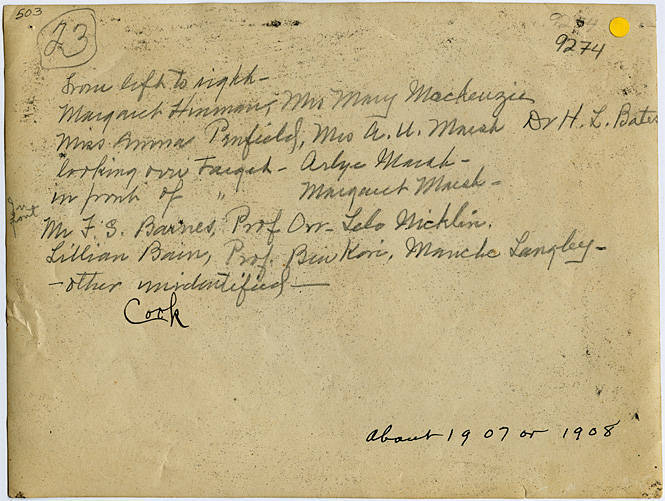 503
23
9274
9274
From left to right-
Margaret Hinman, Mrs Mary Mackenzie
Miss Anna Penfield, Mrs A. U. Marsh Dr H. L. Bates
looking over Faget- Arlye Marsh-
in front of " Margaret Marsh-
In front
Mr F. S. Barnes, Prof Orr- Lelo Nicklin.
Lillian Bain, Prof. Ben Kori, Manche Langley-
-other unidentified-
Cook
About 1907 or 1908